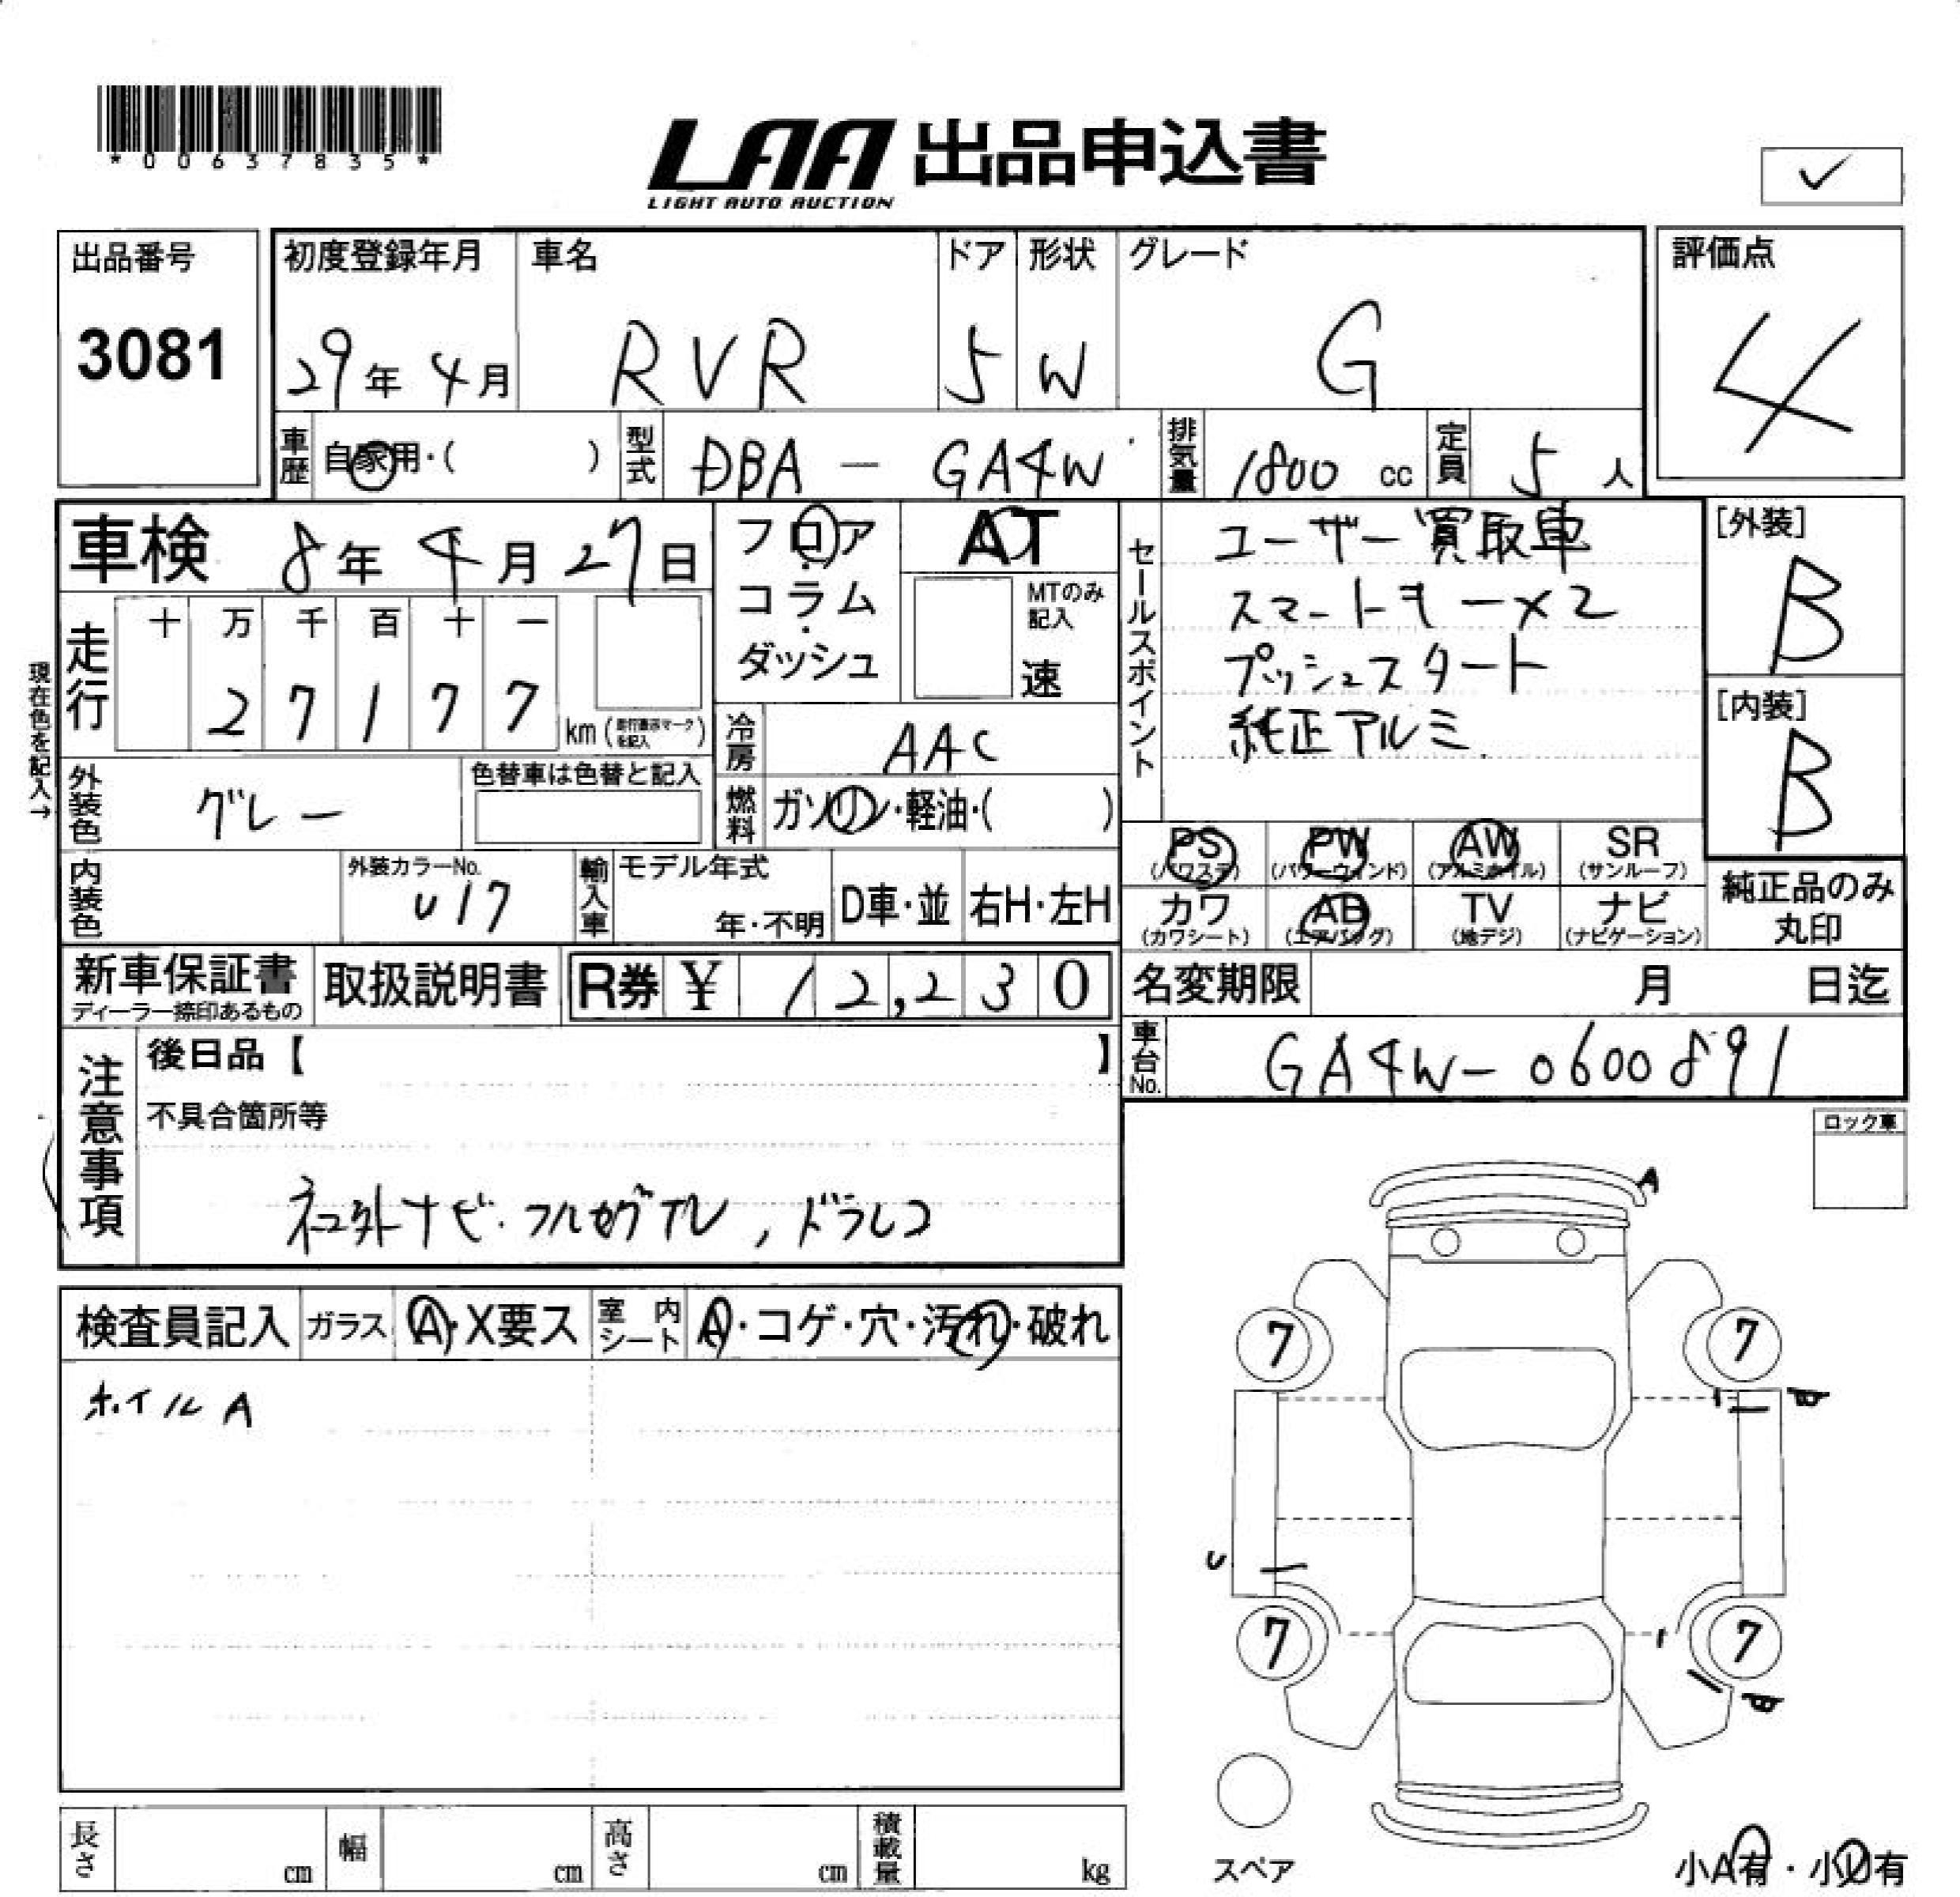 *00637835*
LAA 出品申込書
LIGHT AUTO AUCTION
✓
出品番号 初度登録年月 車名 ドア 形状 グレード 評価点
3081 29年 4月 RVR 5 W G 4
車歴 自家用・( ) 型式 DBA - GA4W 排気量 1800 cc 定員 5 人
車検 8年 4月 27日 フロア AT
コラム MTのみ記入
ダッシュ 速
セールスポイント
ユーザー買取車
スマートキー×2
プッシュスタート
純正アルミ
[外装]
B
[内装]
B
現在色を記入→
走行 十 万 千 百 十 一
2 7 1 7 7 km (走行表示マークを記入)
冷房 AAC
外装色 グレー 色替車は色替と記入 燃料 ガソリン・軽油・( )
内装色 外装カラーNo. 輸入車 モデル年式
U17 年・不明 D車・並 右H・左H
PS PW AW SR
(パワステ) (パワーウィンド) (アルミホイル) (サンルーフ)
カワ AB TV ナビ
(カワシート) (エアバッグ) (地デジ) (ナビゲーション)
純正品のみ
丸印
新車保証書 取扱説明書 R券 ¥ 12,230 名変期限 月 日迄
ディーラー捺印あるもの
車台No. GA4W-0600891
注意事項
後日品【 】
不具合箇所等
外ナビ・フルセグTV,ドラレコ
ロック車
検査員記入 ガラス A・X要ス 室内シート A・コゲ・穴・汚れ・破れ
ホイルA
A
7 7
B
U
7 7
B
スペア
小A有・小U有
長さ cm 幅 cm 高さ cm 積載量 kg